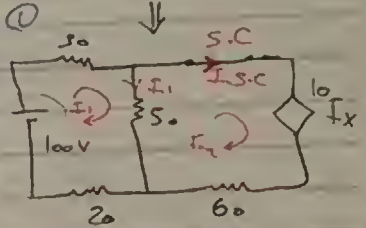 ①
S.C
30
I S.C
I₁
I₁
50
100V
I₂
10 Iₓ
20
60